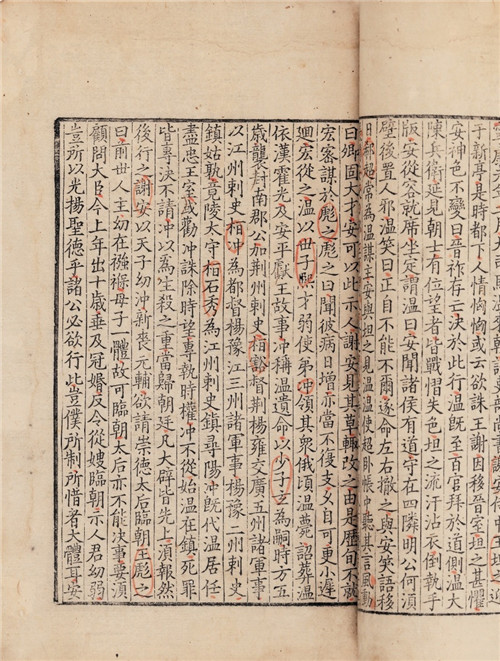 于新亭是時都下人情恟恟或云欲誅王謝因移晉室坦之甚懼
安神色不變曰晉祚存亡決於此行溫既至百官拜於道側溫大
陳兵衛延見朝士有位望者皆戰慴失色坦之流汗沾衣倒執手
版安從容就席坐定謂溫曰安聞諸侯有道守在四隣明公何湏
壁後置人邪溫笑曰正自不能不爾遂命左右撤之與安笑語移
日郗超常為溫謀主安與坦之見溫溫使超卧帳中聽其言風動
曰卿固大才安可以此示人謝安見其草輒改之由是歷旬不就
宏密謀於彪之彪之曰聞彼病日增亦當不復支久自可更小遲
迴宏從之溫以世子熙才弱使弟冲領其衆俄頃溫薨詔葬溫
依漢霍光及安平獻王故事冲稱溫遺命以少子玄為嗣時方五
歲襲封南郡公加荆州刺史桓豁都督荆楊雍交廣五州諸軍事
以江州刺史桓冲為都督楊豫江三州諸軍事楊豫二州刺史
鎮姑孰竟陵太守桓石秀為江州刺史鎮尋陽冲既代溫居任
盡忠王室或勸冲誅除時望專執時權冲不從始溫在鎮死罪
皆專決不請冲以為生殺之重當歸朝廷凡大辟皆先上湏報然
後行之謝安以天子幼冲新喪元輔欲請崇德太后臨朝王彪之
曰前世人主幼在襁褓母子一體故可臨朝太后亦不能决事要湏
顧問大臣今上年出十歲垂及冠婚反令從嫂臨朝示人君幼弱
豈所以光揚聖德乎諸公必欲行此豈僕所制所惜者大體耳安